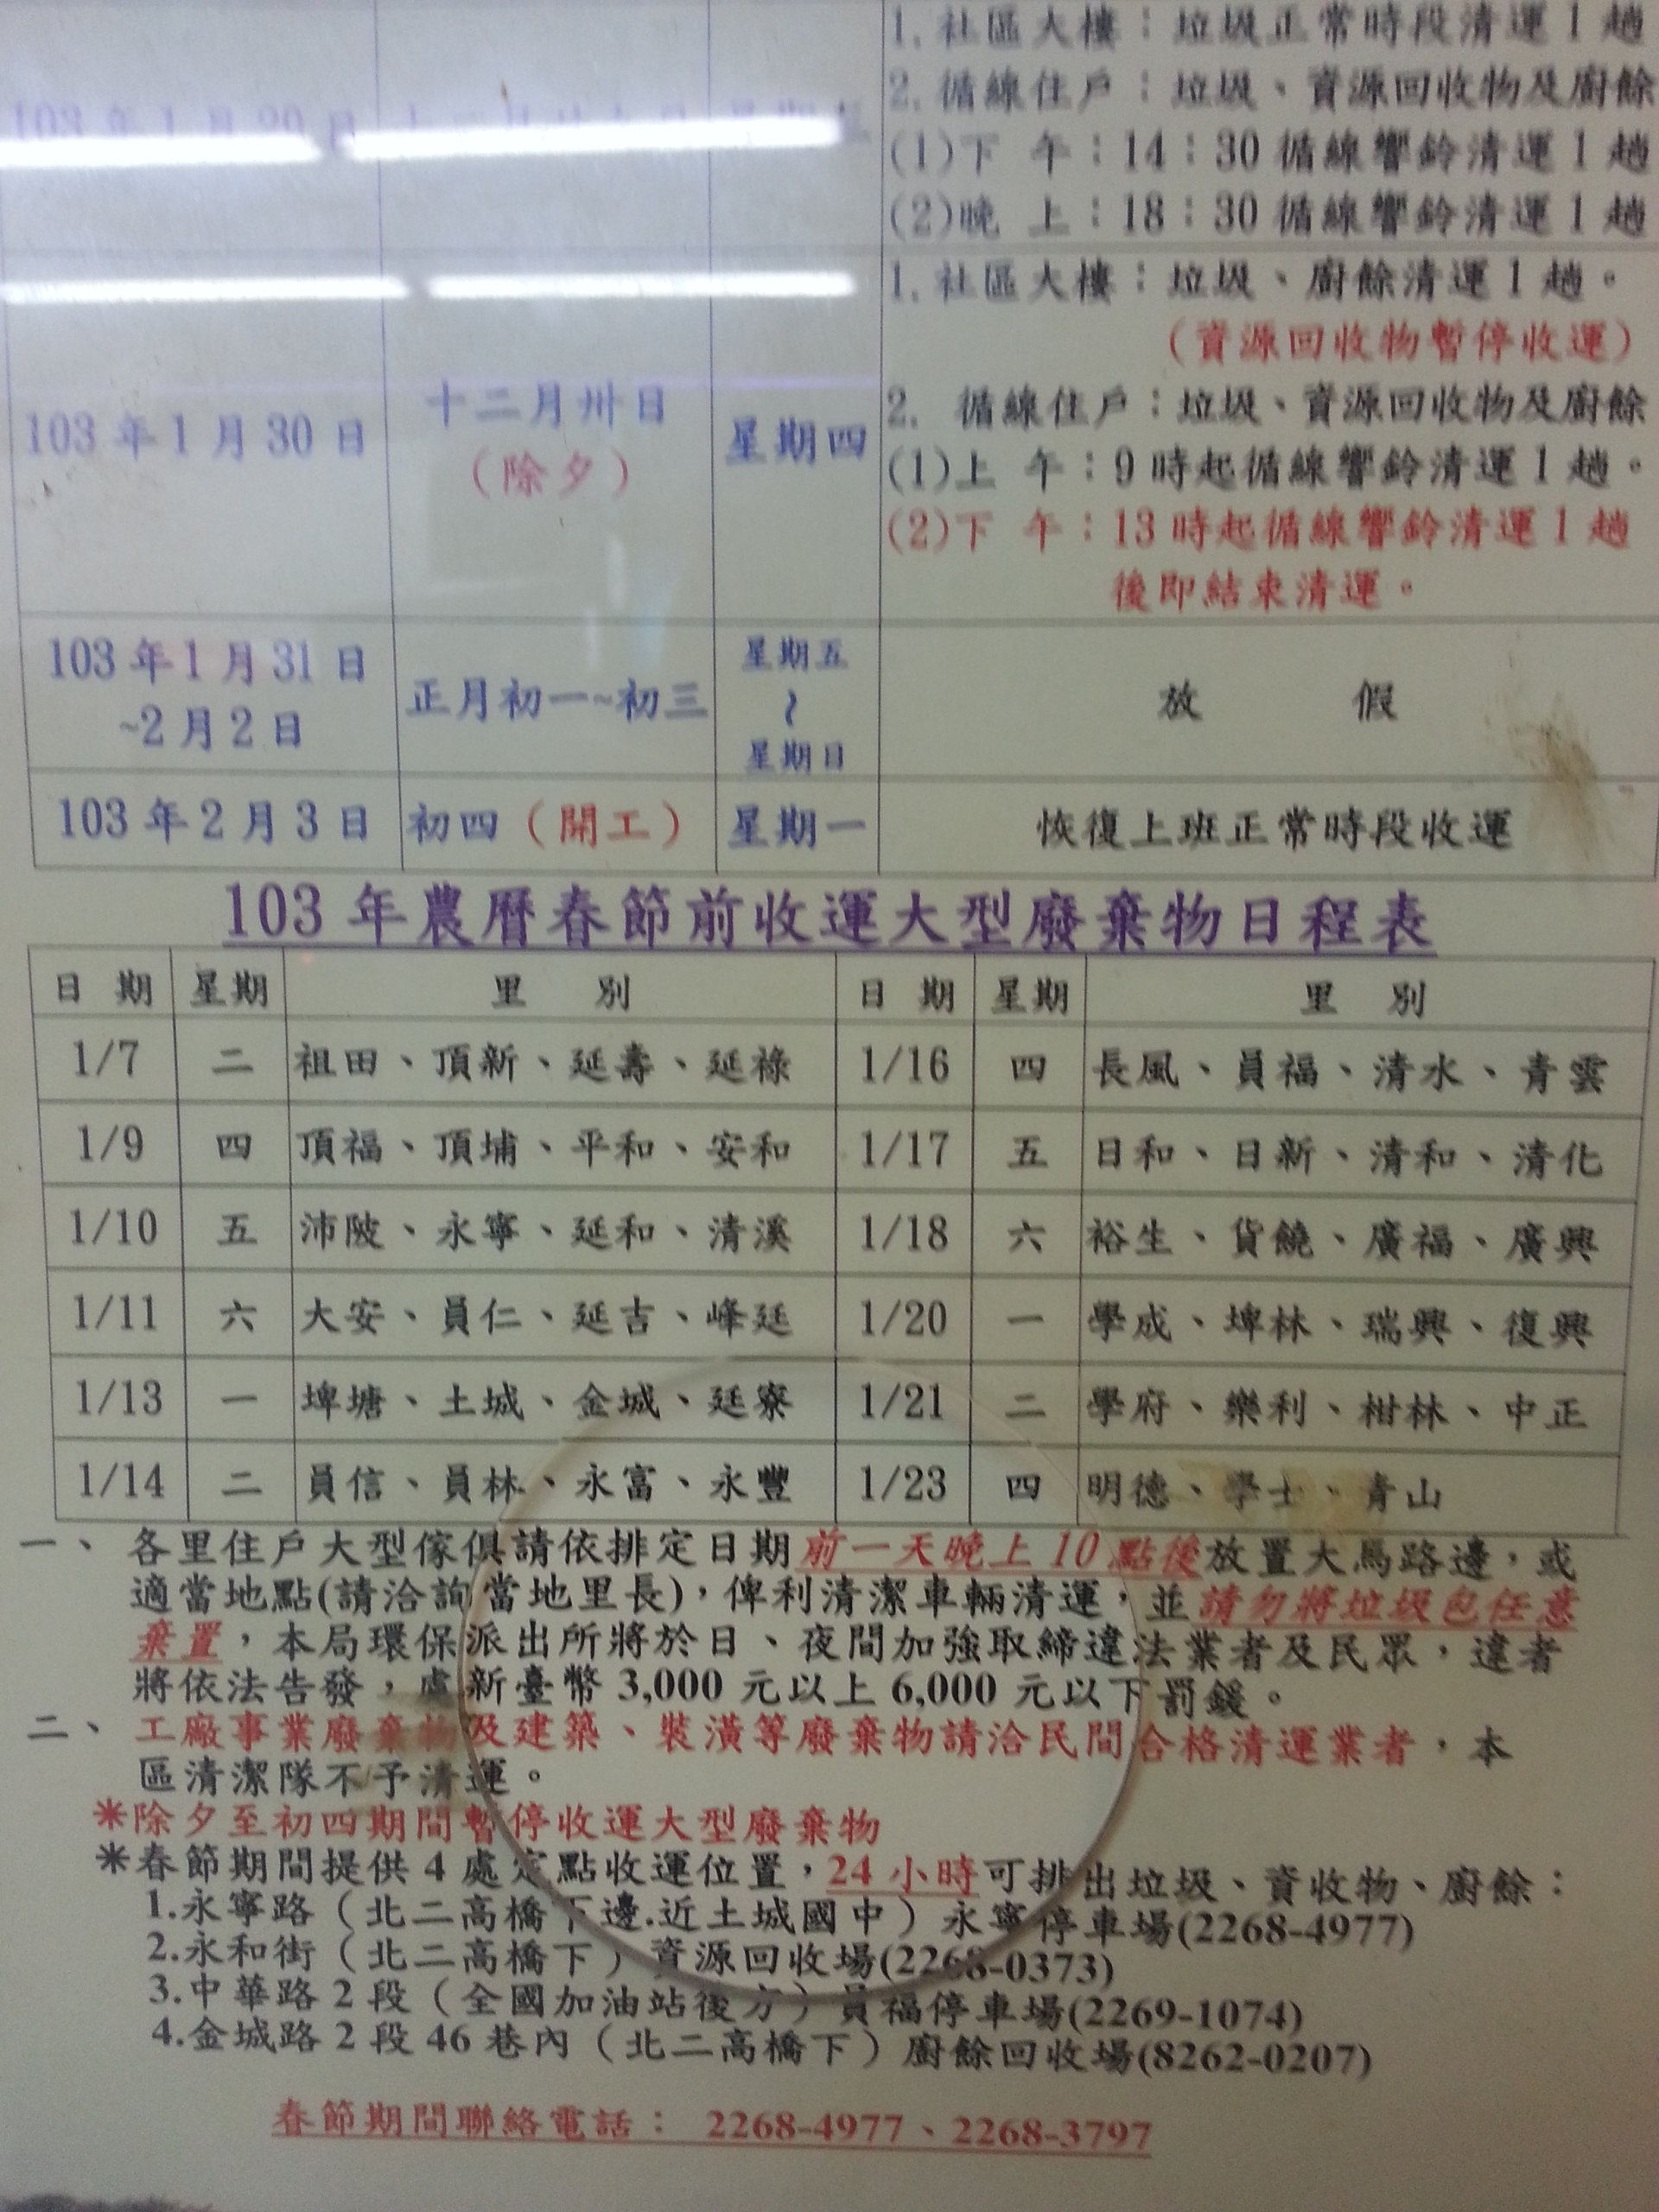 1.社區大樓：垃圾正常時段清運1趟
2.循線住戶：垃圾、資源回收物及廚餘
103年1月29日
(1)下 午：14：30循線響鈴清運1趟
(2)晚 上：18：30循線響鈴清運1趟
1.社區大樓：垃圾、廚餘清運1趟。
（資源回收物暫停收運）
103年1月30日 十二月卅日 星期四
（除夕）
2. 循線住戶：垃圾、資源回收物及廚餘
(1)上 午：9時起循線響鈴清運1趟。
(2)下 午：13時起循線響鈴清運1趟
後即結束清運。
103年1月31日 正月初一~初三 星期五 放 假
~2月2日 ~ 星期日
103年2月3日 初四（開工） 星期一 恢復上班正常時段收運
103年農曆春節前收運大型廢棄物日程表
日 期 星期 里 別 日 期 星期 里 別
1/7 二 祖田、頂新、延壽、延祿 1/16 四 長風、員福、清水、青雲
1/9 四 頂福、頂埔、平和、安和 1/17 五 日和、日新、清和、清化
1/10 五 沛陂、永寧、延和、清溪 1/18 六 裕生、貨饒、廣福、廣興
1/11 六 大安、員仁、延吉、峰廷 1/20 一 學成、埤林、瑞興、復興
1/13 一 埤塘、土城、金城、廷寮 1/21 二 學府、樂利、柑林、中正
1/14 二 員信、員林、永富、永豐 1/23 四 明德、學士、青山
一、各里住戶大型傢俱請依排定日期前一天晚上10點後放置大馬路邊，或
適當地點(請洽詢當地里長)，俾利清潔車輛清運，並請勿將垃圾包任意
棄置，本局環保派出所將於日、夜間加強取締違法業者及民眾，違者
將依法告發，處新臺幣3,000元以上6,000元以下罰鍰。
二、工廠事業廢棄物及建築、裝潢等廢棄物請洽民間合格清運業者，本
區清潔隊不予清運。
＊除夕至初四期間暫停收運大型廢棄物
＊春節期間提供4處定點收運位置，24小時可排出垃圾、資收物、廚餘：
1.永寧路（北二高橋下邊.近土城國中）永寧停車場(2268-4977)
2.永和街（北二高橋下）資源回收場(2268-0373)
3.中華路2段（全國加油站後方）員福停車場(2269-1074)
4.金城路2段46巷內（北二高橋下）廚餘回收場(8262-0207)
春節期間聯絡電話： 2268-4977、2268-3797